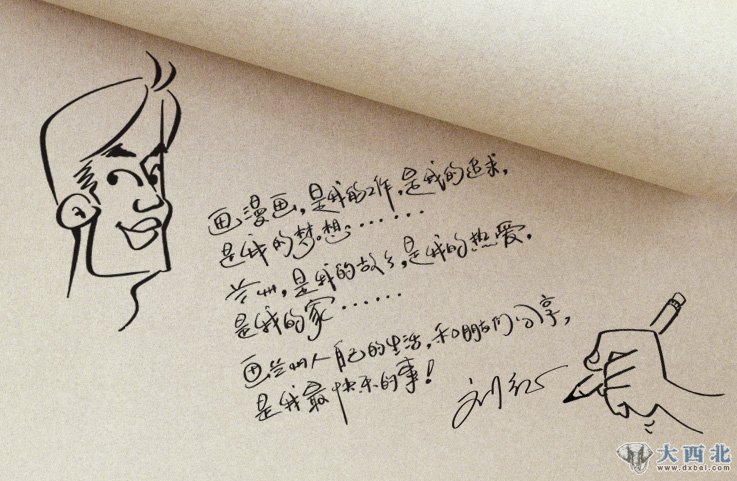 画漫画,是我的工作,是我的追求,
是我的梦想……
兰州,是我的故乡,是我的热爱,
是我的家……
画兰州人自己的生活,和朋友们分享,
是我最快乐的事!
大西北
www.dxbei.com